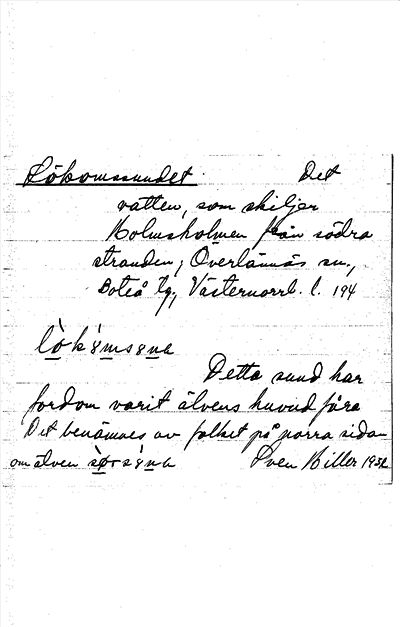 Lökomssundet. Det
vatten, som skiljer
Holmsholmen från södra
stranden, Överlännäs sn.,
Boteå tg, Västernorrl. l. 194
Detta sund har
fordom varit älvens huvudfåra
Det benämnes av folket på norra sidan
om älven Sven Biller 1932